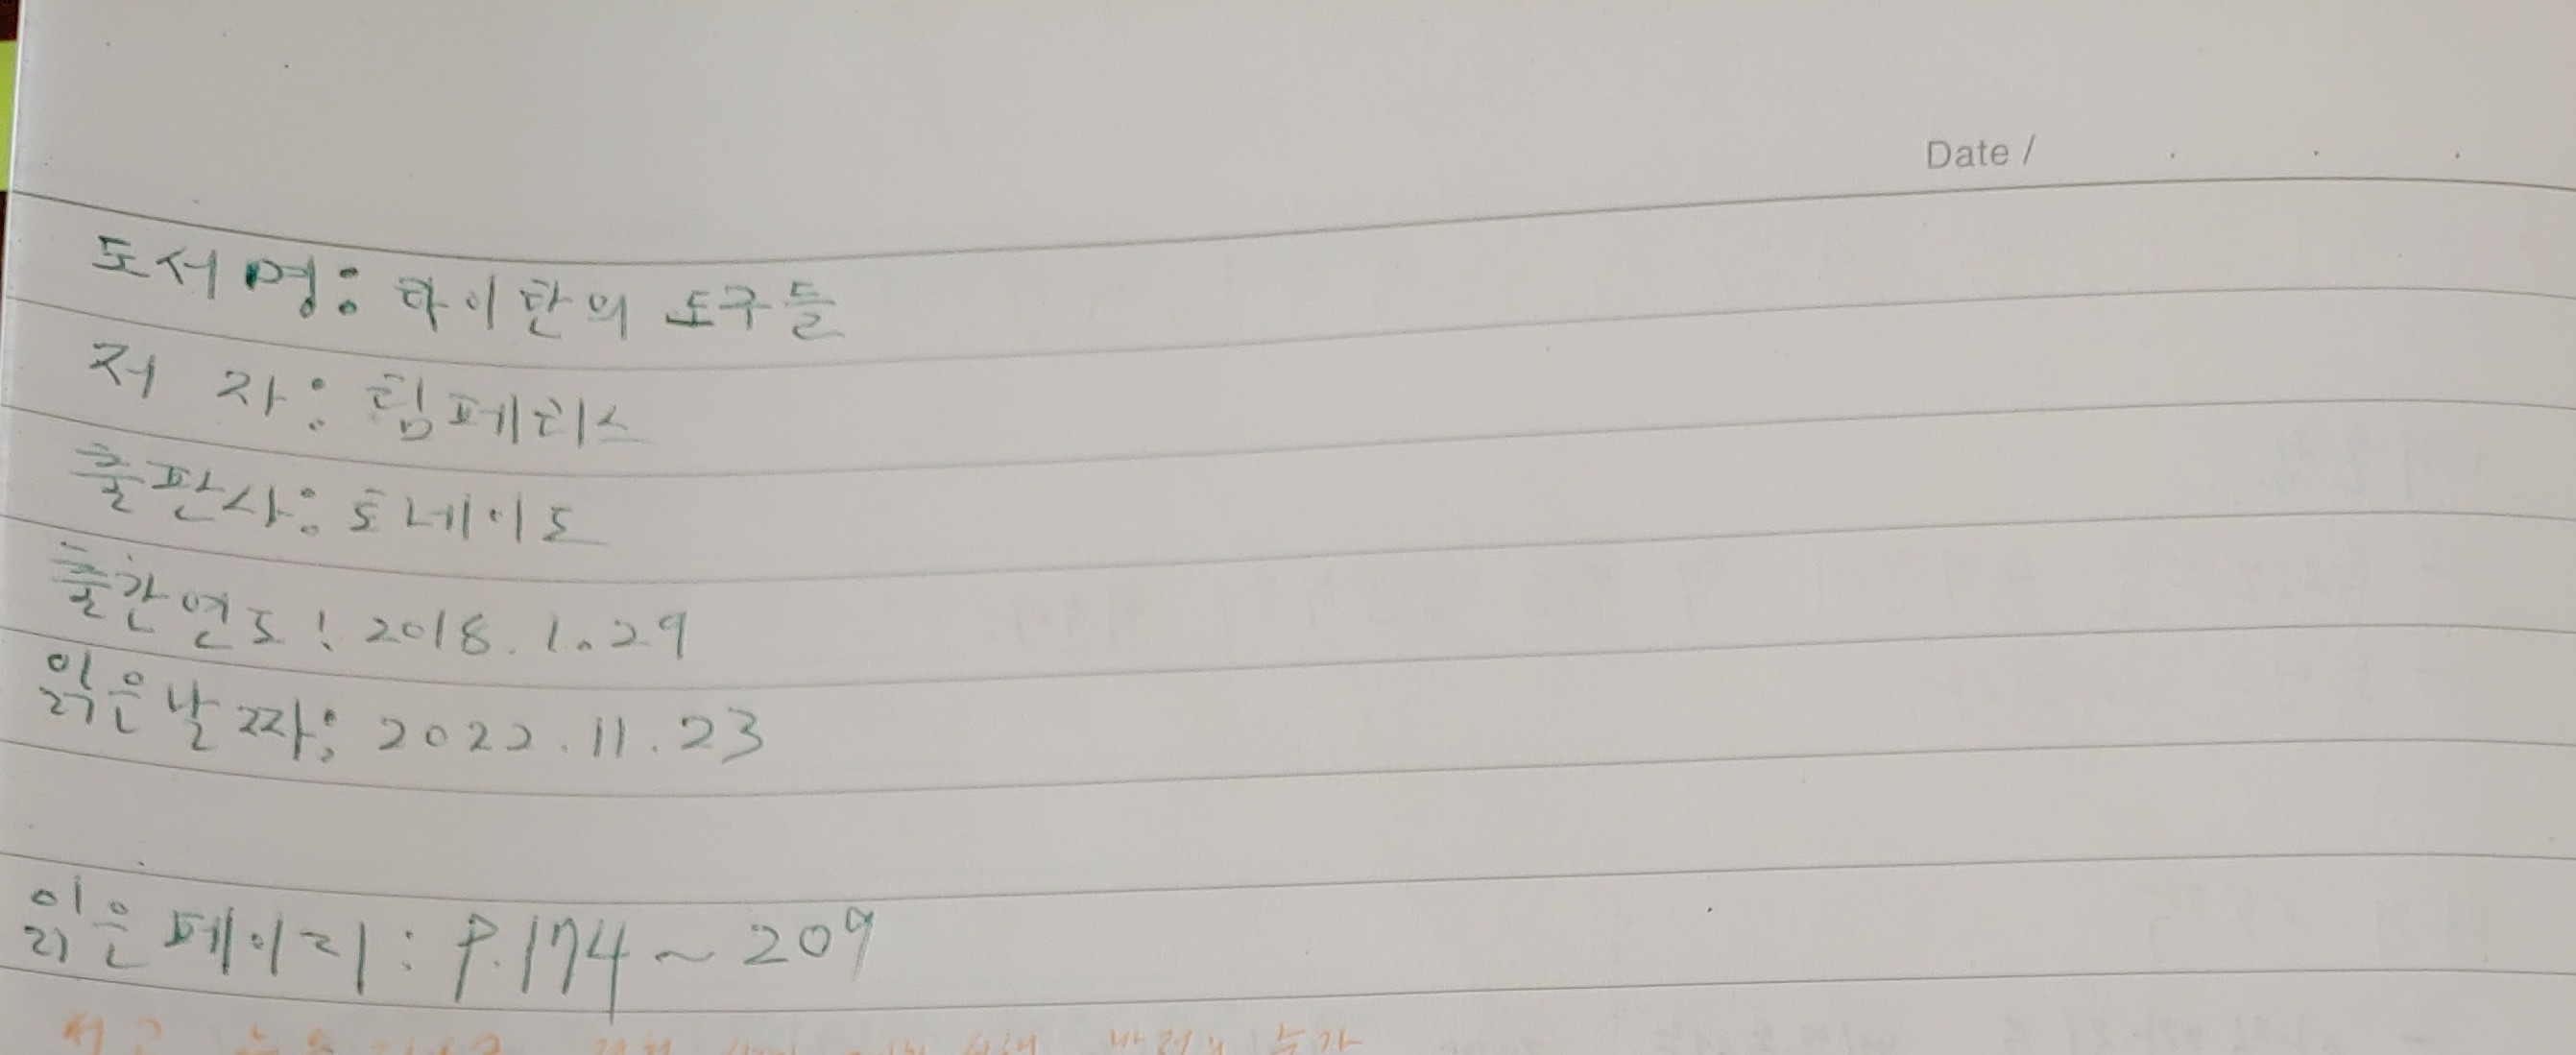 Date / . . .
도서명: 타이탄의 도구들
저 자: 팀페리스
출판사: 토네이도
출간연도: 2018. 1. 29
읽은날짜: 2022. 11. 23
읽은페이지: P.174~209